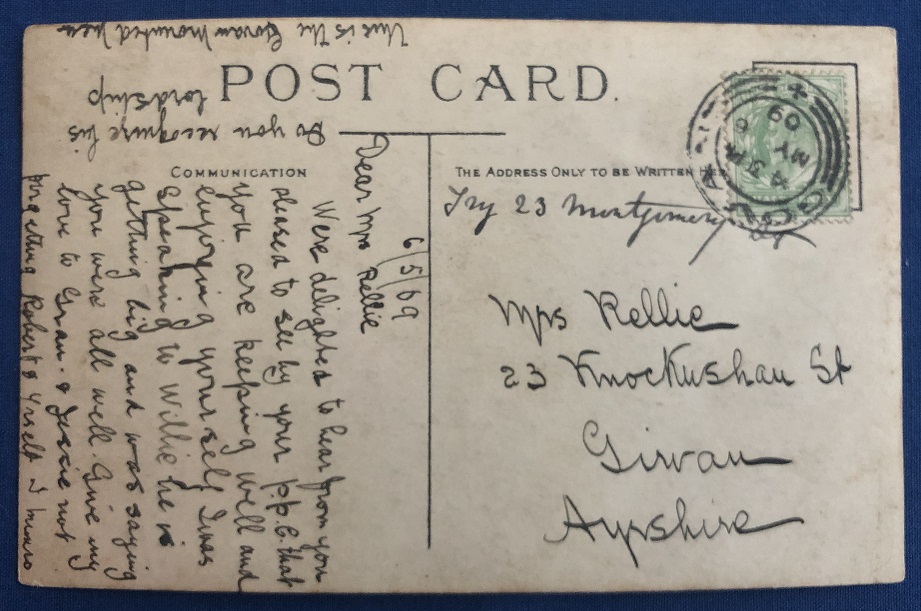 POST CARD.
COMMUNICATION
THE ADDRESS ONLY TO BE WRITTEN HE
Try 23 Montgomery St
Mrs Rellie
23 Knockushan St
Girvan
Ayrshire
6/5/09
Dear Mrs Rellie
Were delighted to hear from you
pleased to see by your p.p.c. that
you are keeping well and
enjoying yourself I was
speaking to Willie he is
getting big and was saying
you were all well. Give my
love to Gran. & Jessie not
forgetting Robert & yrself J Munro
Do you recognise his
lordship
This is the Govan mounted men
5 PM
MY 6
09